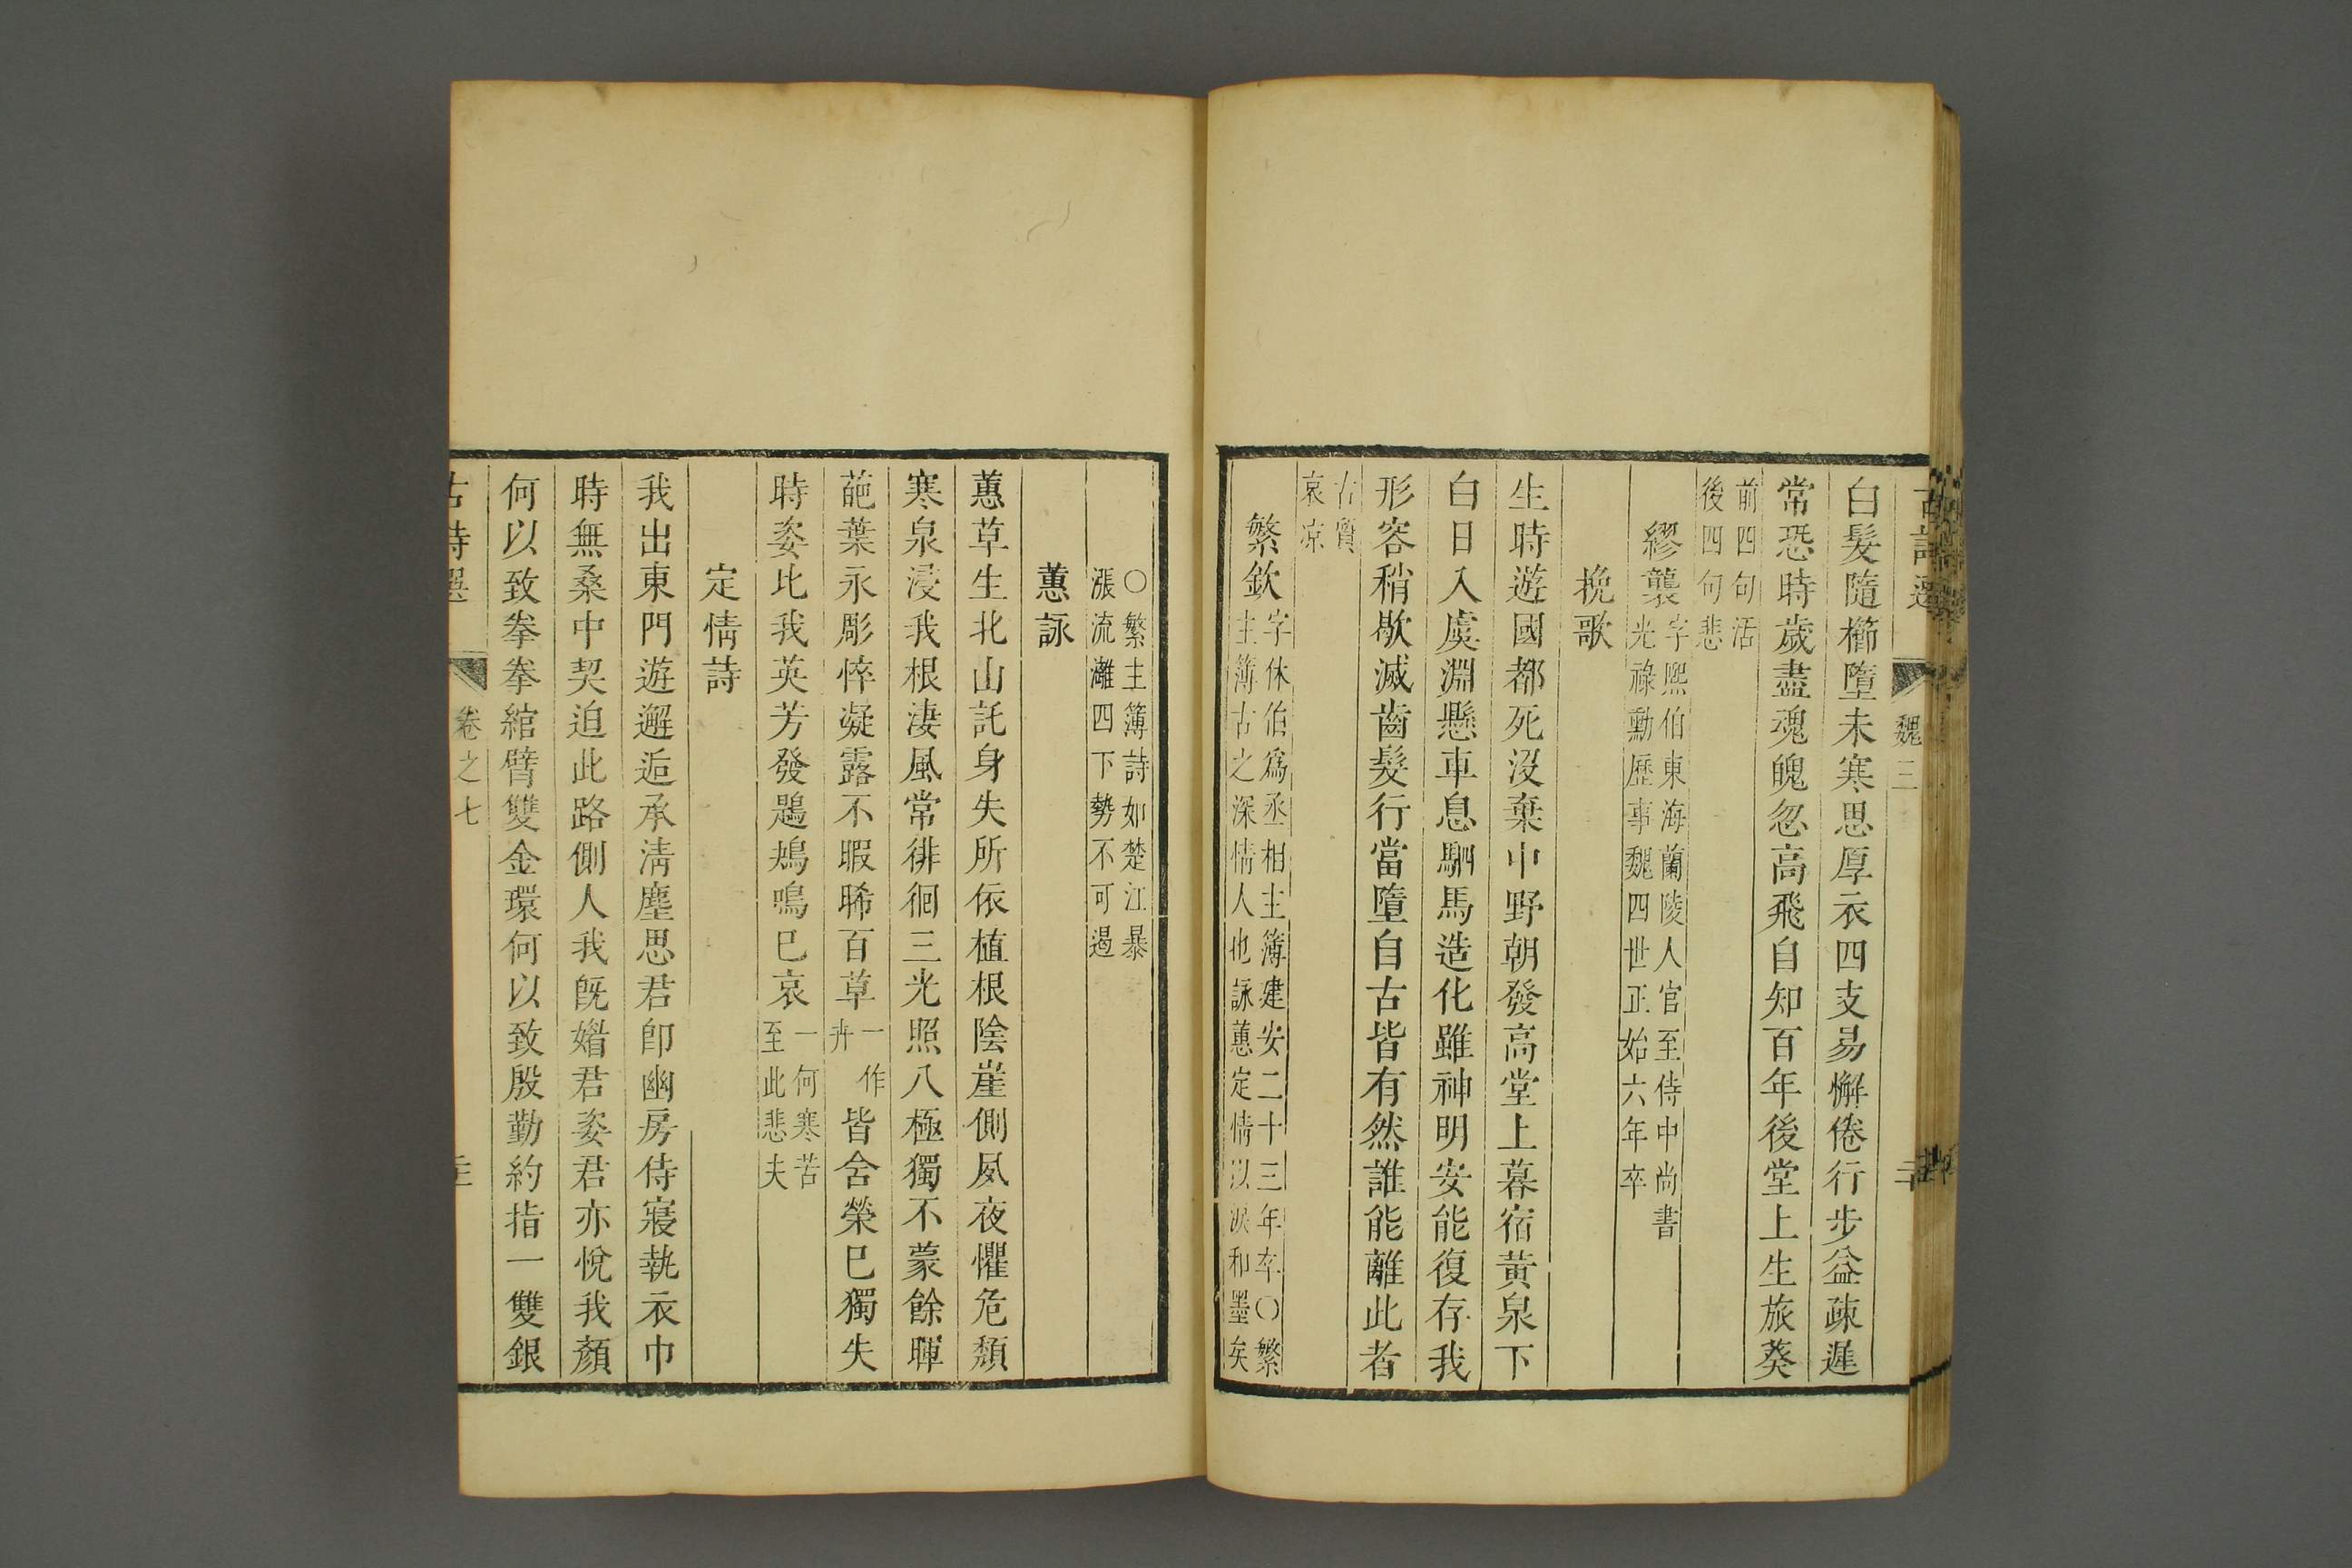 魏三
白髮隨櫛墮未寒思厚衣四支易懈倦行步益疎遲
常恐時歲盡魂魄忽高飛自知百年後堂上生旅葵
前四句活
後四句悲
繆襲字熙伯東海蘭陵人官至侍中尚書
光祿勳歷事魏四世正始六年卒
挽歌
生時遊國都死沒棄中野朝發高堂上暮宿黃泉下
白日入虞淵懸車息駟馬造化雖神明安能復存我
形容稍歇滅齒髮行當墮自古皆有然誰能離此者
古質
哀凉
繁欽字休伯爲丞相主簿建安二十三年卒〇繁
主簿古之深情人也詠蕙定情以淚和墨矣
〇繁主簿詩如楚江暴
漲流灕四下勢不可遏
蕙詠
蕙草生北山託身失所依植根陰崖側夙夜懼危頽
寒泉浸我根淒風常徘徊三光照八極獨不蒙餘暉
葩葉永彫悴凝露不暇晞百草一作卉皆舍榮已獨失
時姿比我英芳發鶗鴂鳴已哀一何寒苦至此悲夫
定情詩
我出東門遊邂逅承淸塵思君卽幽房侍寢執衣巾
時無桑中契迫此路側人我旣媚君姿君亦悅我顏
何以致拳拳綰臂雙金環何以致殷勤約指一雙銀
古詩選 卷之七